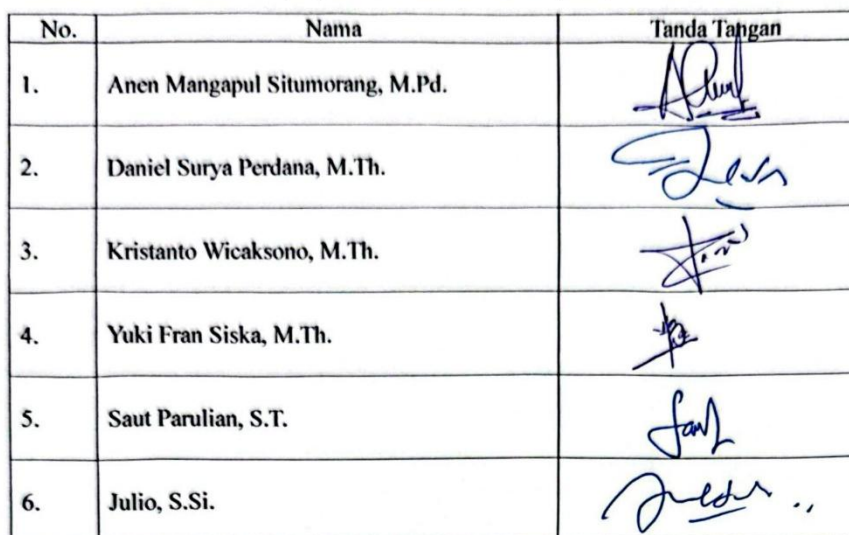 No. Nama Tanda Tangan
1. Anen Mangapul Situmorang, M.Pd.
2. Daniel Surya Perdana, M.Th.
3. Kristanto Wicaksono, M.Th.
4. Yuki Fran Siska, M.Th.
5. Saut Parulian, S.T.
6. Julio, S.Si.